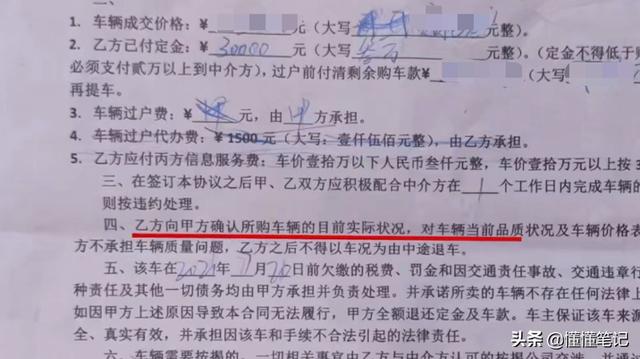 1. 车辆成交价格：￥ 元（大写 元整）。
2. 乙方已付定金：￥ 30000 元（大写 叁万 元整）。（定金不得低于
必须支付贰万以上到中介方），过户前付清剩余购车款￥ （大写
再提车。
3. 车辆过户费：￥ 元，由 甲 方承担。
4. 车辆过户代办费：￥1500元（大写：壹仟伍佰元整），由乙方承担。
5. 乙方应付丙方信息服务费：车价壹拾万以下人民币叁仟元整，车价壹拾万以上按
三、在签订本协议之后甲、乙双方应积极配合中介方在 1 个工作日内完成车辆的
则按违约处理。
四、乙方向甲方确认所购车辆的目前实际状况，对车辆当前品质状况及车辆价格表
方不承担车辆质量问题，乙方之后不得以车况为由中途退车。
五、该车在2021年 月 日前欠缴的税费、罚金和因交通责任事故、交通违章行
种责任及其他一切债务均由甲方承担并负责处理。并承诺所卖的车辆不存在任何法律上
如因甲方上述原因导致本合同无法履行，甲方全额退还定金及车款。车主保证该车来源
全、真实有效，并承担因该车和手续不合法引起的法律责任。
六、车辆需要按揭的，一切相关事宜由乙方与中介方认可的按揭公司交涉，并
头条 @懂懂笔记